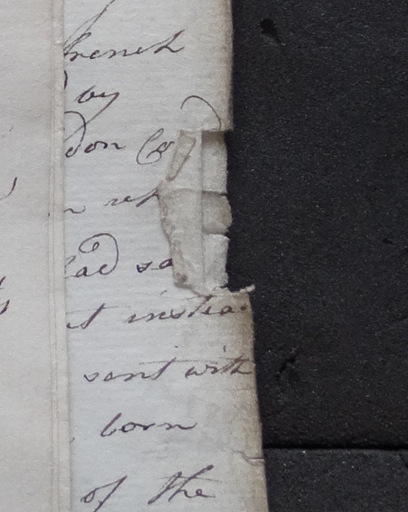 french
by
don Co
n re
ad sa
t instea
sent with
born
of the